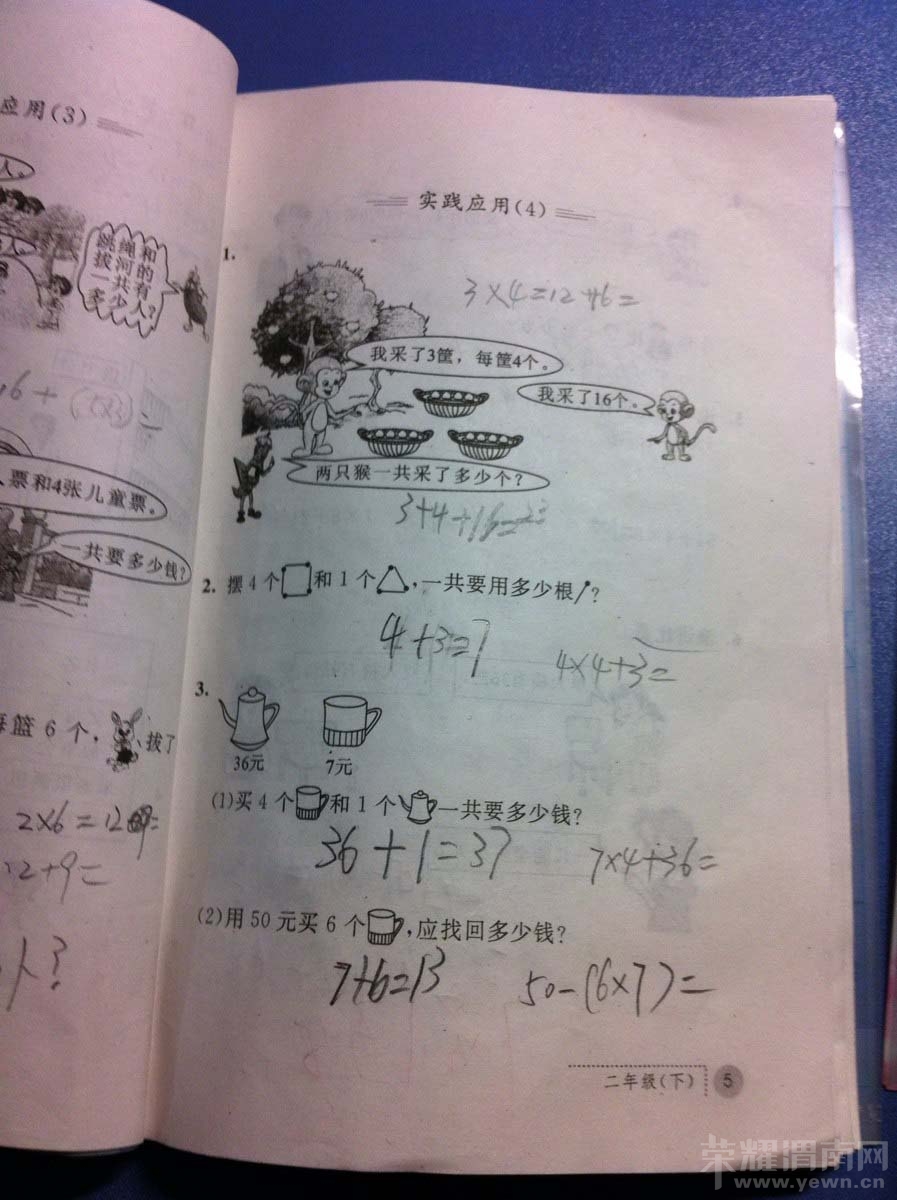 应用(3)
人。
人。
跳绳和
拔河的
一共有
多少人?
16+(5×3)=
票和4张儿童票。
一共要多少钱?
每篮6个,拔了
2×6=12
12+9=
个?
实践应用(4)
1.
3×4=12+16=
我采了3筐,每筐4个。
我采了16个。
两只猴一共采了多少个?
3+4+16=23
2. 摆4个和1个,一共要用多少根?
4+3=7
4×4+3=
3.
36元
7元
(1)买4个和1个一共要多少钱?
36+1=37
7×4+36=
(2)用50元买6个,应找回多少钱?
7+6=13
50-(6×7)=
二年级(下) 5
荣耀渭南网
www.yewn.cn